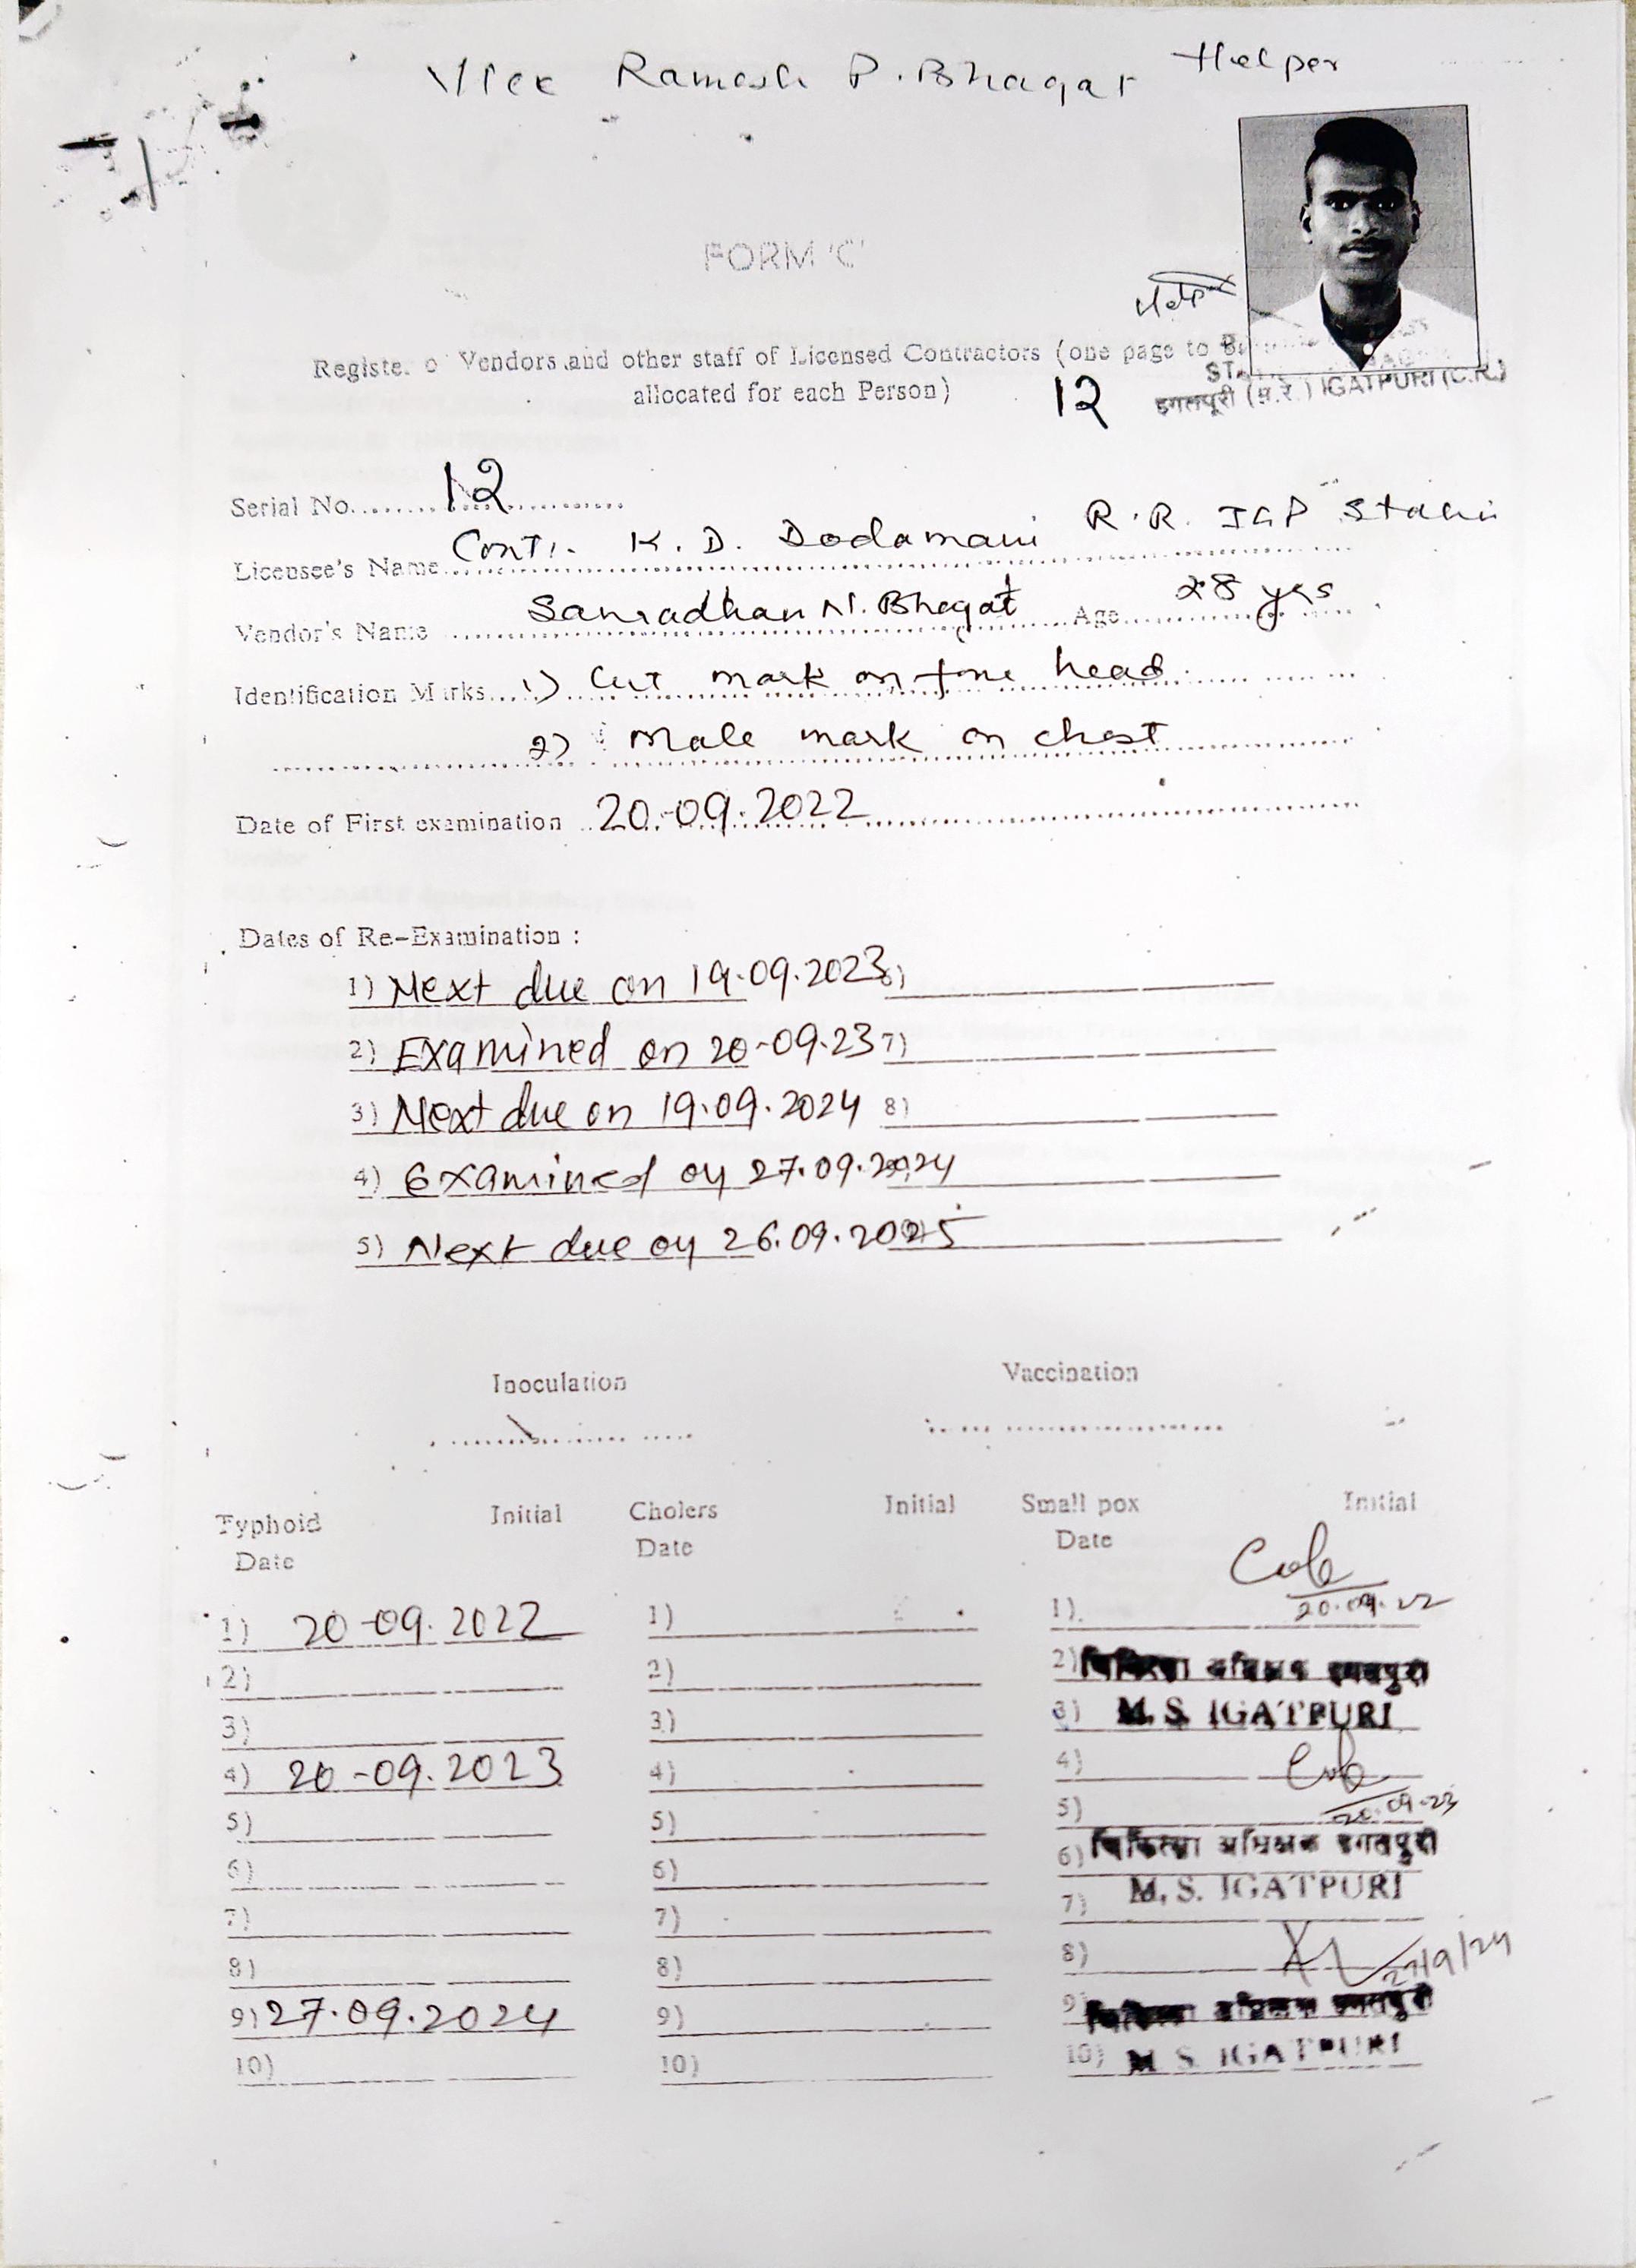 Vice Ramesh P. Bhagat Helper
FORM 'C'
Help
Register o Vendors and other staff of Licensed Contractors (one page to
allocated for each Person) 12
इगतपूरी (म.रे.) IGATPURI (C.R.)
Serial No. 12
Licensee's Name Cont:- K. D. Dodamani R.R. IGP
Vendor's Name N. Bhagat Age 28 yrs
Identification Marks 1) Cut mark on fore head
2) Male mark on chest
Date of First examination 20-09-2022
Dates of Re-Examination :
1) Next due on 19.09.2023 6)
2) Examined on 20-09-23 7)
3) Next due on 19.09.2024 8)
4) Examined on 27.09.2024
5) Next due on 26.09.2025
Inoculation Vaccination
Typhoid Initial Cholers Initial Small pox Initial
Date Date Date
1) 20-09.2022 1) 1) 20.09.22
2) 2) 2) चिकित्सा अधिक्षक इगतपुरी
3) 3) 3) M.S. IGATPURI
4) 20-09.2023 4) 4)
5) 5) 5) 20.09.23
6) 6) 6) चिकित्सा अधिक्षक इगतपुरी
7) 7) 7) M.S. IGATPURI
8) 8) 8) 27/9/24
9) 27.09.2024 9) 9) चिकित्सा अधिक्षक इगतपुरी
10) 10) 10) M S IGATPURI